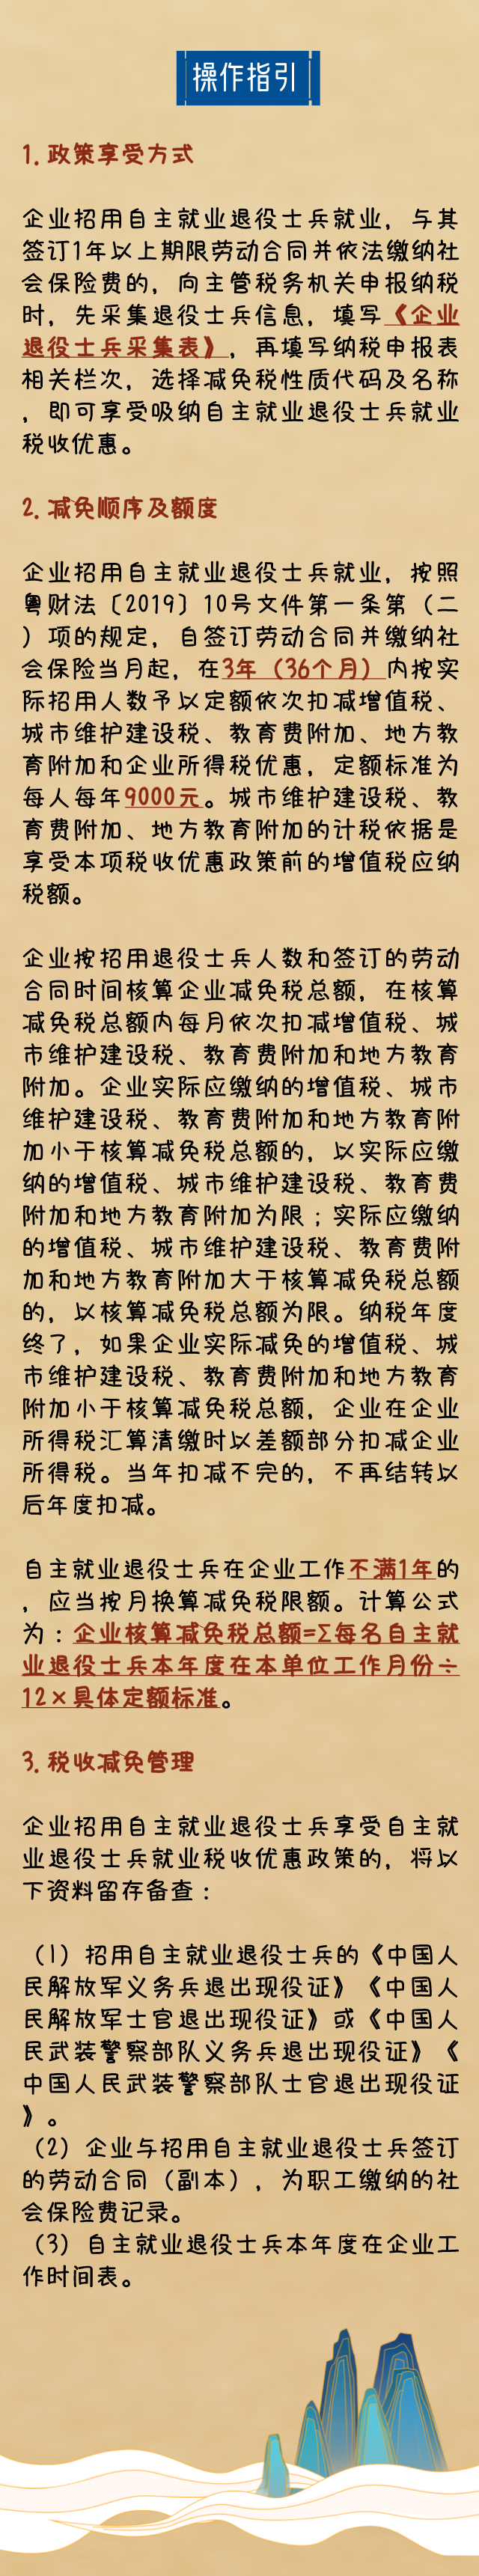 操作指引
1. 政策享受方式
企业招用自主就业退役士兵就业，与其
签订1年以上期限劳动合同并依法缴纳社
会保险费的，向主管税务机关申报纳税
时，先采集退役士兵信息，填写《企业
退役士兵采集表》，再填写纳税申报表
相关栏次，选择减免税性质代码及名称
，即可享受吸纳自主就业退役士兵就业
税收优惠。
2. 减免顺序及额度
企业招用自主就业退役士兵就业，按照
粤财法〔2019〕10号文件第一条第（二
）项的规定，自签订劳动合同并缴纳社
会保险当月起，在3年（36个月）内按实
际招用人数予以定额依次扣减增值税、
城市维护建设税、教育费附加、地方教
育附加和企业所得税优惠，定额标准为
每人每年9000元。城市维护建设税、教
育费附加、地方教育附加的计税依据是
享受本项税收优惠政策前的增值税应纳
税额。
企业按招用退役士兵人数和签订的劳动
合同时间核算企业减免税总额，在核算
减免税总额内每月依次扣减增值税、城
市维护建设税、教育费附加和地方教育
附加。企业实际应缴纳的增值税、城市
维护建设税、教育费附加和地方教育附
加小于核算减免税总额的，以实际应缴
纳的增值税、城市维护建设税、教育费
附加和地方教育附加为限；实际应缴纳
的增值税、城市维护建设税、教育费附
加和地方教育附加大于核算减免税总额
的，以核算减免税总额为限。纳税年度
终了，如果企业实际减免的增值税、城
市维护建设税、教育费附加和地方教育
附加小于核算减免税总额，企业在企业
所得税汇算清缴时以差额部分扣减企业
所得税。当年扣减不完的，不再结转以
后年度扣减。
自主就业退役士兵在企业工作不满1年的
，应当按月换算减免税限额。计算公式
为：企业核算减免税总额=Σ每名自主就
业退役士兵本年度在本单位工作月份÷
12×具体定额标准。
3. 税收减免管理
企业招用自主就业退役士兵享受自主就
业退役士兵就业税收优惠政策的，将以
下资料留存备查：
（1）招用自主就业退役士兵的《中国人
民解放军义务兵退出现役证》《中国人
民解放军士官退出现役证》或《中国人
民武装警察部队义务兵退出现役证》《
中国人民武装警察部队士官退出现役证
》。
（2）企业与招用自主就业退役士兵签订
的劳动合同（副本），为职工缴纳的社
会保险费记录。
（3）自主就业退役士兵本年度在企业工
作时间表。